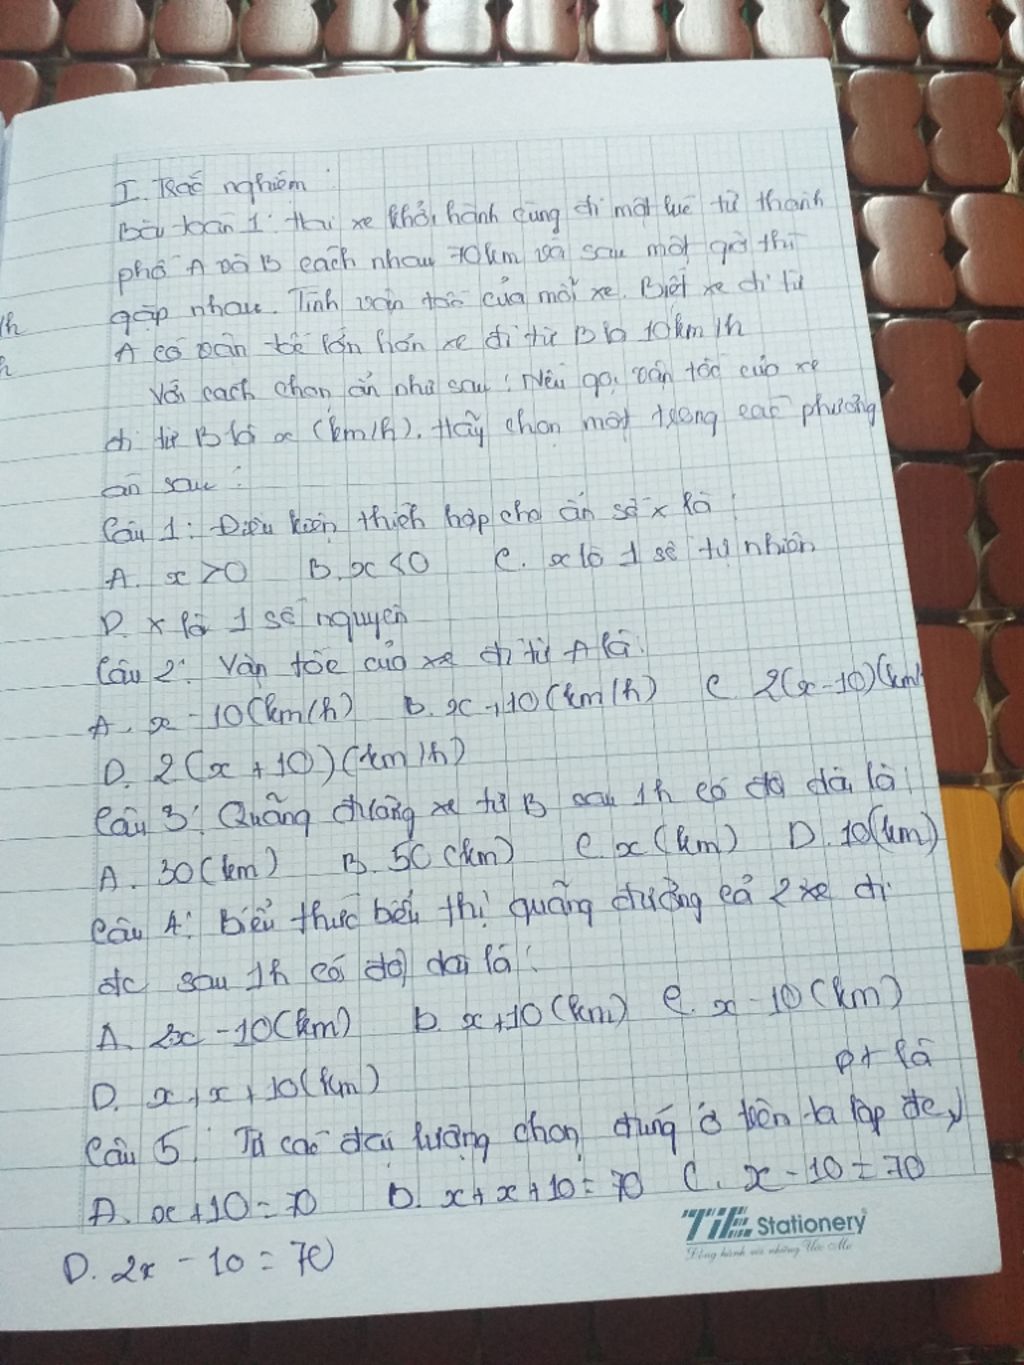 I. Trắc nghiệm
Bài toán 1: Hai xe khởi hành cùng đi một lúc từ thành
phố A và B cách nhau 70km và sau một giờ thì
gặp nhau. Tính vận tốc của mỗi xe. Biết xe đi từ
A có vận tốc lớn hơn xe đi từ B là 10km/h
Với cách chọn ẩn như sau: Nếu gọi vận tốc của xe
đi từ B là x (km/h). Hãy chọn một trong các phương
án sau:
Câu 1: Điều kiện thích hợp cho ẩn số x là:
A. x > 0 B. x < 0 C. x là 1 số tự nhiên
D. x là 1 số nguyên
Câu 2: Vận tốc của xe đi từ A là:
A. x - 10 (km/h) B. x + 10 (km/h) C. 2(x - 10) (km/
D. 2(x + 10) (km/h)
Câu 3: Quãng đường xe từ B sau 1h có độ dài là:
A. 30 (km) B. 50 (km) C. x (km) D. 10 (km)
Câu 4: Biểu thức biểu thị quãng đường cả 2 xe đi
đc sau 1h có độ dài là:
A. 2x - 10 (km) B. x + 10 (km) C. x - 10 (km)
D. x + x + 10 (km)
pt là
Câu 5: Từ các đại lượng chọn đúng ở trên ta lập đc
A. x + 10 = 70 B. x + x + 10 = 70 C. x - 10 = 70
D. 2x - 10 = 70
TiE Stationery
Đồng hành với những Ước Mơ
/h
h